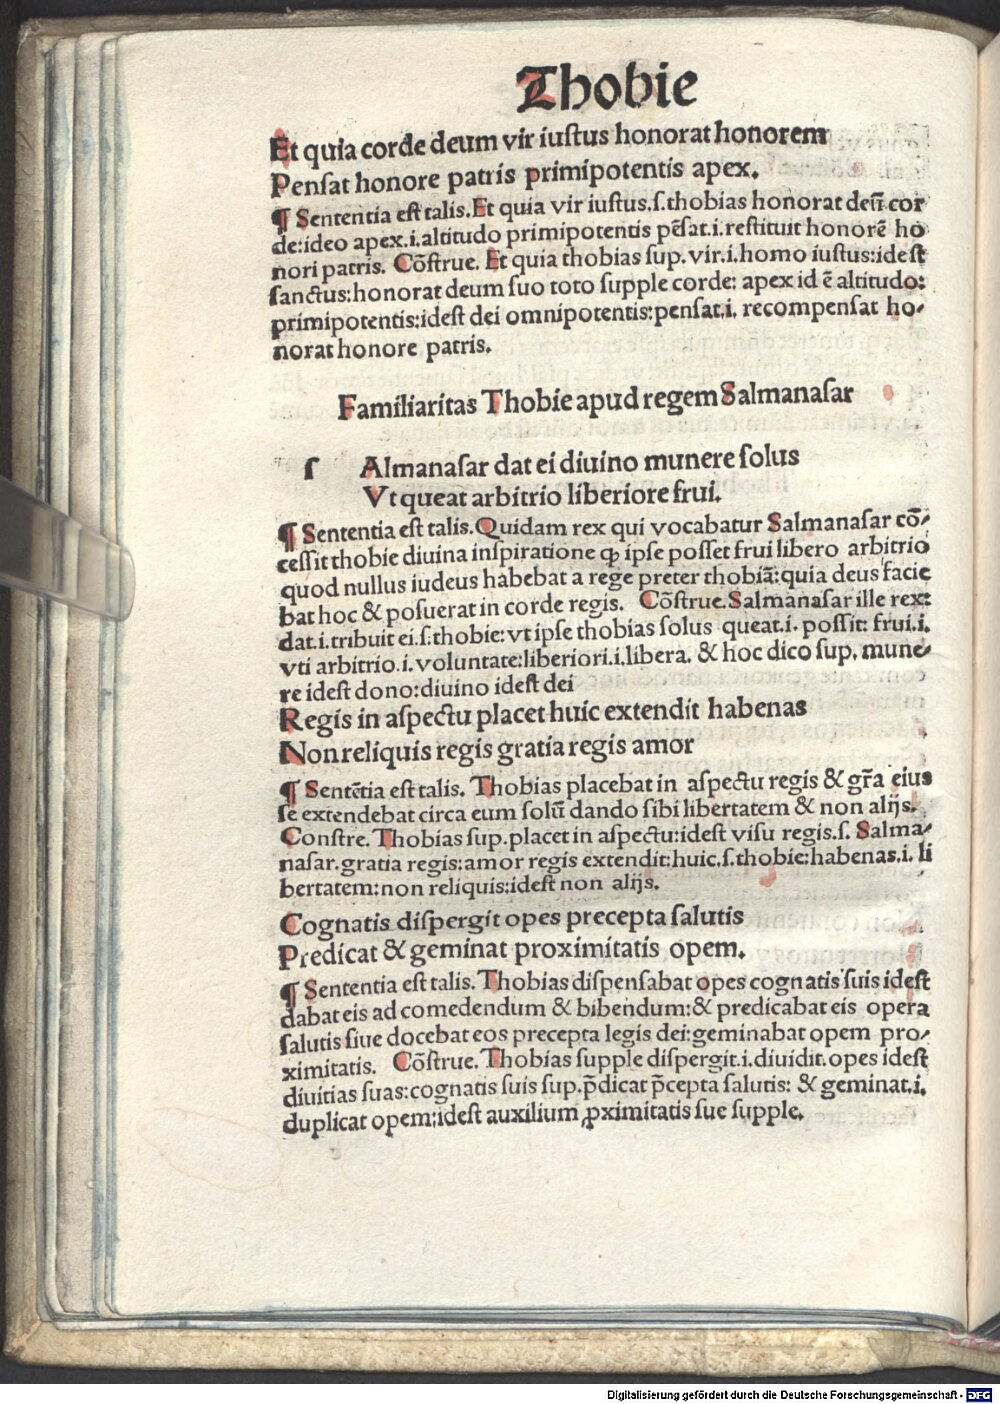 Thobie
Et quia corde deum vir iustus honorat honorem
Pensat honore patris primipotentis apex.
¶ Sententia est talis. Et quia vir iustus.s.thobias honorat deū cor
de:ideo apex.i.altitudo primipotentis pēsat.i.restituit honorē ho
nori patris. Cōstrue. Et quia thobias sup.vir.i.homo iustus:idest
sanctus:honorat deum suo toto supple corde: apex id ē altitudo:
primipotentis:idest dei omnipotentis:pensat.i. recompensat ho/
norat honore patris.
Familiaritas Thobie apud regem Salmanasar
s Almanasar dat ei diuino munere solus
Vt queat arbitrio liberiore frui.
¶ Sententia est talis. Quidam rex qui vocabatur Salmanasar cō/
cessit thobie diuina inspiratione ꝙ ipse posset frui libero arbitrio
quod nullus iudeus habebat a rege preter thobiā:quia deus facie
bat hoc & posuerat in corde regis. Cōstrue.Salmanasar ille rex:
dat.i.tribuit ei.s.thobie:vt ipse thobias solus queat.i. possit: frui.i.
vti arbitrio.i.voluntate:liberiori.i.libera. & hoc dico sup. mune/
re idest dono:diuino idest dei
Regis in aspectu placet huic extendit habenas
Non reliquis regis gratia regis amor
¶ Sentētia est talis. Thobias placebat in aspectu regis & gr̄a eius
se extendebat circa eum solū dando sibi libertatem & non alijs.
Constre. Thobias sup.placet in aspectu:idest visu regis.s. Salma/
nasar.gratia regis:amor regis extendit:huic.s.thobie:habenas.i. li
bertatem:non reliquis:idest non alijs.
Cognatis dispergit opes precepta salutis
Predicat & geminat proximitatis opem.
¶ Sententia est talis. Thobias dispensabat opes cognatis suis idest
dabat eis ad comedendum & bibendum:& predicabat eis opera
salutis siue docebat eos precepta legis dei:geminabat opem pro/
ximitatis. Cōstrue. Thobias supple dispergit.i.diuidit.opes idest
diuitias suas:cognatis suis sup.p̄dicat p̄cepta salutis: & geminat.i.
duplicat opem:idest auxilium ꝓximitatis sue supple.
Digitalisierung gefördert durch die Deutsche Forschungsgemeinschaft - DFG